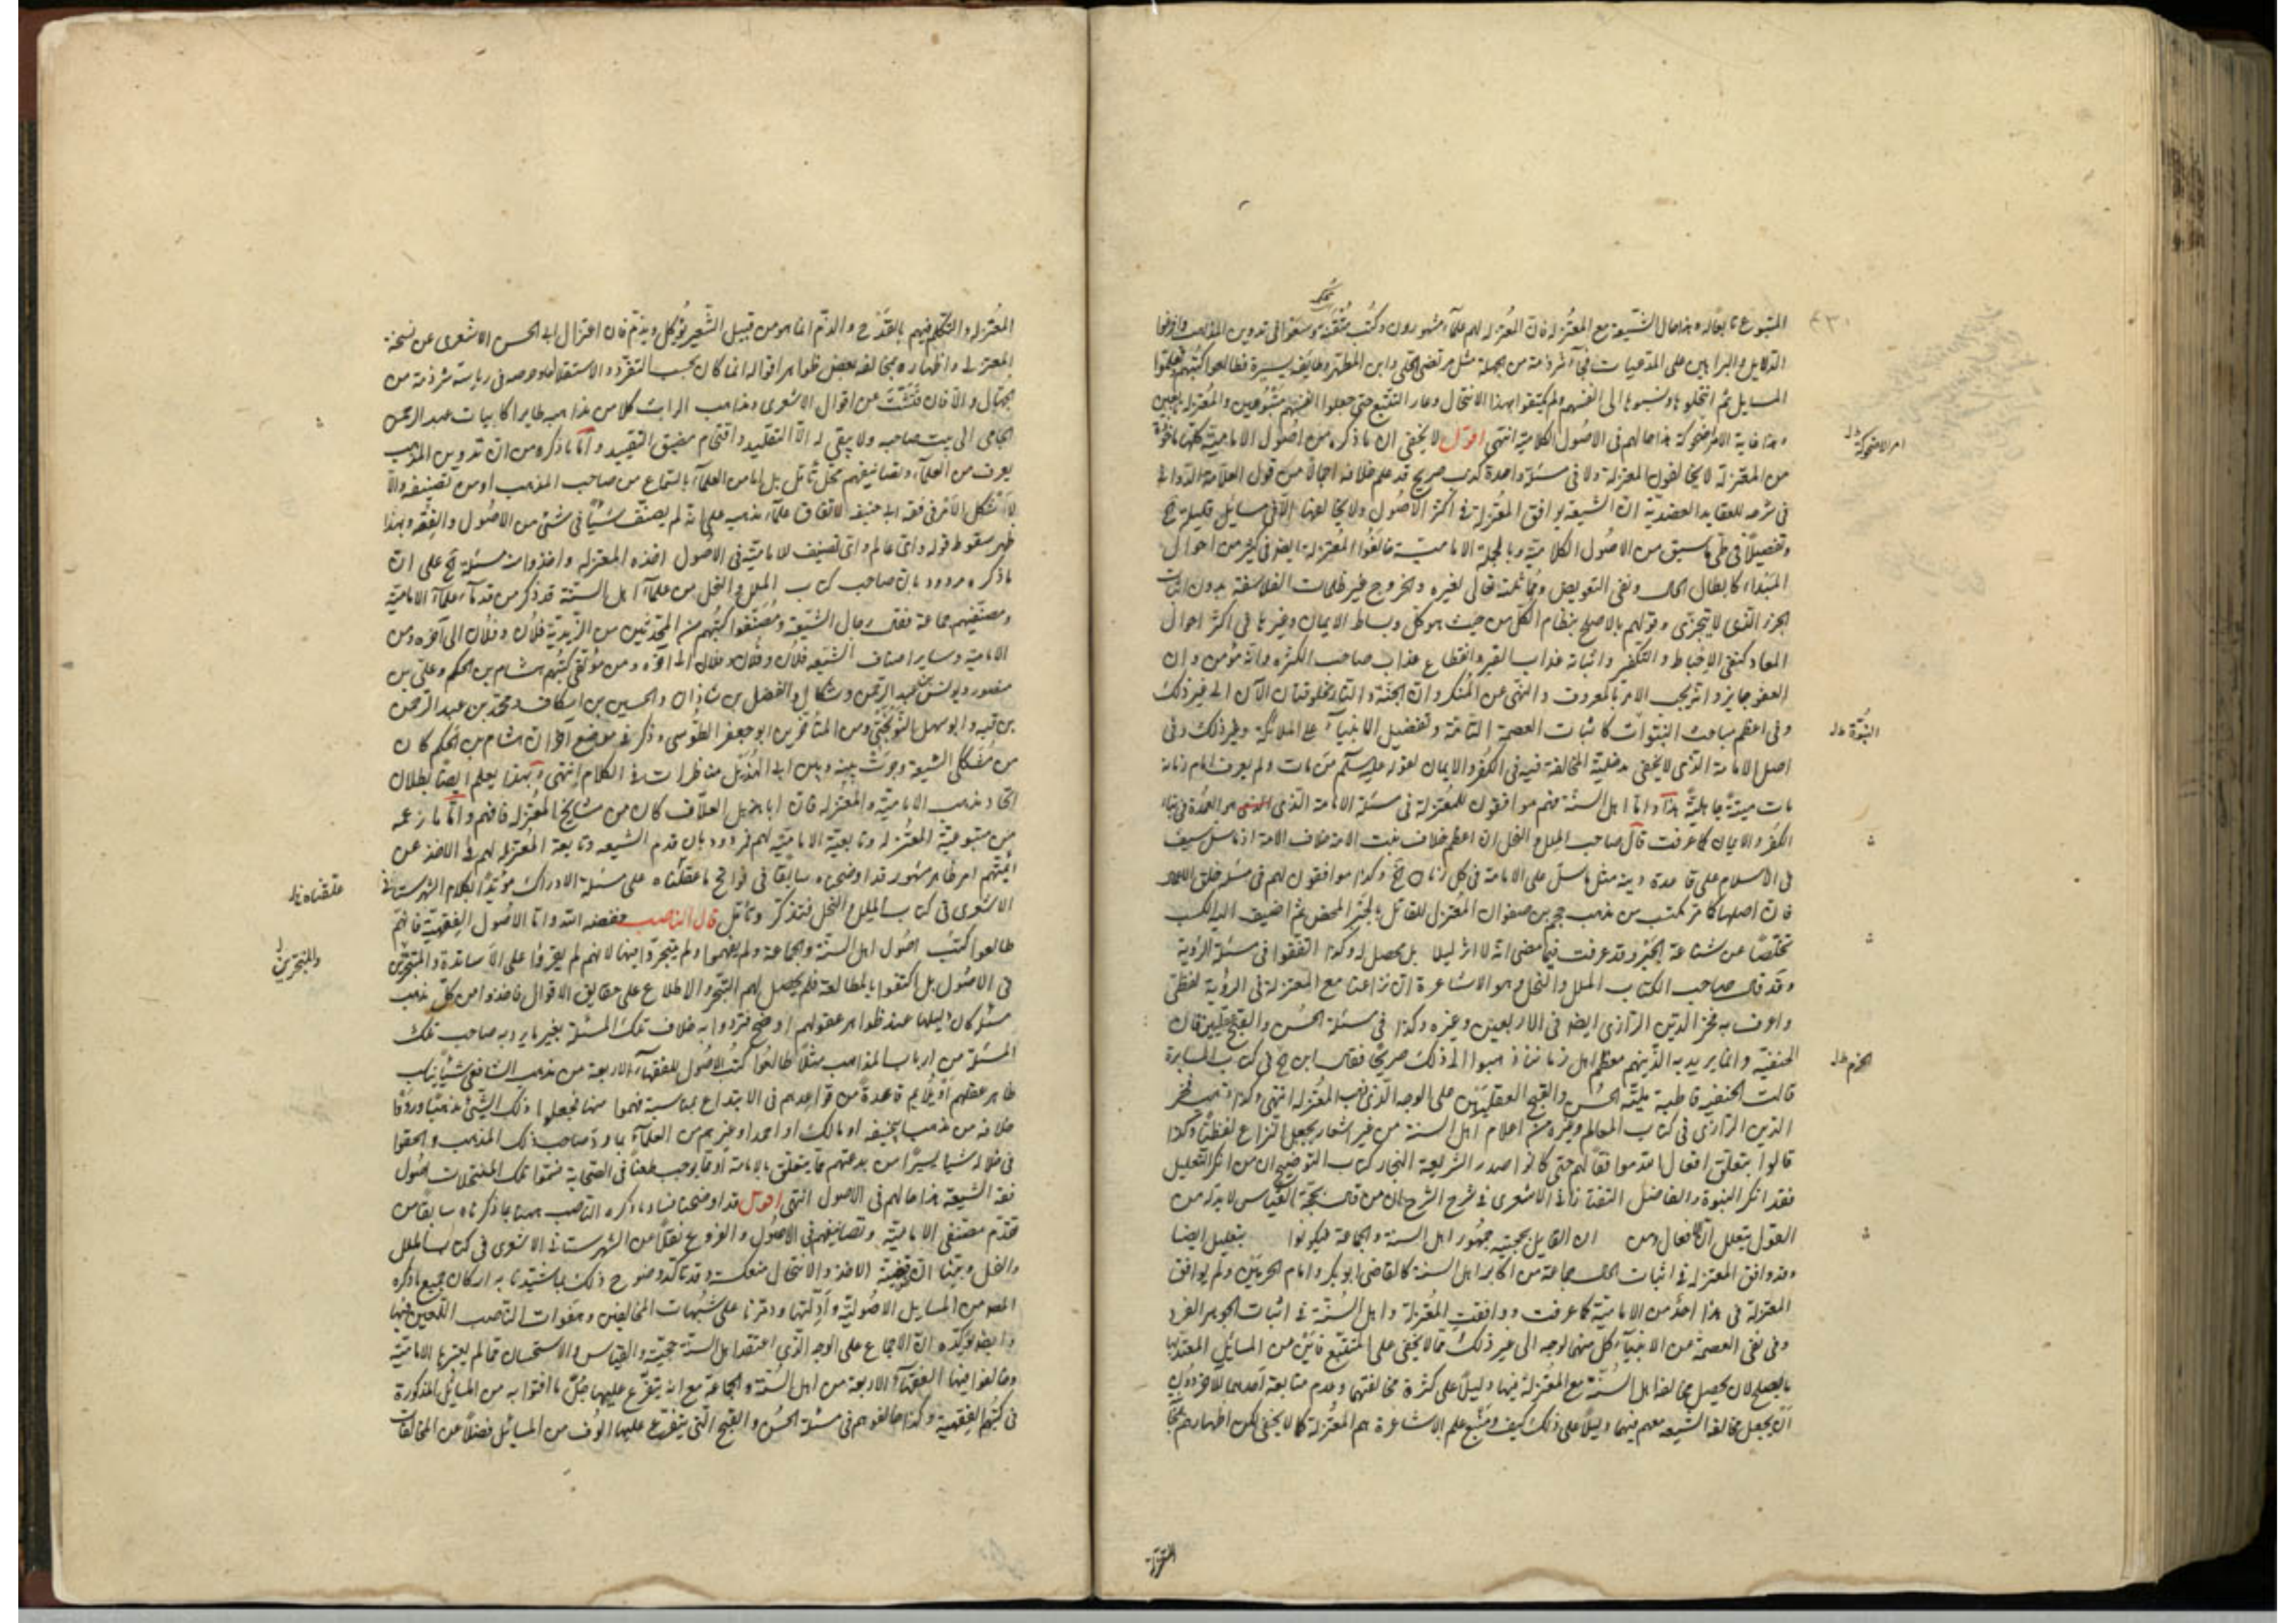 المتبوع تابعا له وهذا حال الشيعة مع المعتزلة فان المعتزلة لهم علماء مشهورون وكتب متقنة وسعوا في تدوين المذهب واقاموا
الدلايل والبراهين على المدعيات فجاء شرذمة من الجهلة مثل مرتضى الحلي وابن المطهر وطايفة يسيرة فطالعوا كتبهم وتعلموا
المسايل ثم انتحلوها ونسبوها الى انفسهم ولم يكتفوا بهذا الانتحال وعار التتبع حتى جعلوا انفسهم متبوعين والمعتزلة تابعين
وهذا غاية الامر اضحوكة هذا حالهم في الاصول الكلامية انتهى اقول لا يخفى ان ما ذكره من اصول الامامية كلها ماخوذة
من المعتزلة لا يخالفون المعتزلة ولا في مسئلة واحدة كذب صريح قد علم خلافه اجمالا من قول العلامة الدواني
في شرحه للعقايد العضدية ان الشيعة يوافق المعتزلة في اكثر الاصول ولا يخالفها الا في مسايل قليلة الخ
وتفصيلا في طي ما سبق من الاصول الكلامية وبالجملة الامامية خالفوا المعتزلة ايضا في كثير من احوال
المبتداء كابطال الحال ونفي التفويض ومماثلته تعالى لغيره والخروج عن ظلمات الفلاسفة بدون اثبات
الجزء الذي لا يتجزى وقولهم بالاصلح بنظام الكل من حيث هو كل وبساطة الايمان وغيرها في اكثر احوال
المعاد كنفي الاحباط والتكفير واثبات عذاب القبر وانقطاع عذاب صاحب الكبيرة وانه مؤمن وان
العفو جايز وانه يجب الامر بالمعروف والنهي عن المنكر وان الجنة والنار مخلوقتان الآن الى غير ذلك
وفي اعظم مباحث النبوات كاثبات العصمة التامة وتفضيل الانبياء على الملائكة وغير ذلك وفي
اصل الامامة الذي لا يخفى مدخلية المخالفة فيه في الكفر والايمان لقوله عليه السلام من مات ولم يعرف امام زمانه
مات ميتة جاهلية هذا واما اهل السنة فهم موافقون للمعتزلة في مسئلة الامامة الذي هو العمدة في بناء
الكفر والايمان كما عرفت قال صاحب الملل والنحل ان اعظم خلاف بين الامة خلاف الامامة اذ ما سل سيف
في الاسلام على قاعدة دينية مثل ما سل على الامامة في كل زمان الخ وكذا موافقون لهم في مسئلة خلق
فان اصلها كما مر مكتسب من مذهب جهم بن صفوان المعتزلي القائل بالجبر المحض ثم اضيف اليه الكسب
تخلصا عن شناعة الجبر وقد عرفت فيما مضى انه لا بل يحصل له وكذا اتفقوا في مسئلة الرؤية
وقد قال صاحب الكتاب الملل والنحل وهو من الاشاعرة ان نزاعنا مع المعتزلة في الرؤية لفظي
واعترف به فخر الدين الرازي ايضا في الاربعين وغيره وكذا في مسئلة الحسن والقبح العقليين فان
الحنفية والماتريدية الذين هم معظم اهل زماننا ذهبوا الى ذلك صريحا فقال ابن في كتاب المسايرة
قالت الحنفية قاطبة بثبوت الحسن والقبح العقليين على الوجه الذي ذهب المعتزلة انتهى وكذا ذهب فخر
الدين الرازي في كتاب المعالم وغيره من اعلام اهل السنة من غير اشعار بجعل النزاع لفظيا وكذا
قالوا بتعليل افعال الله موافقا لهم حتى قال صدر الشريعة البخاري في كتاب التوضيح ان من انكر التعليل
فقد انكر النبوة والفاضل التفتازاني الاشعري في شرح الشرح ان من قال بحجية القياس لا بد له من
القول بتعليل الافعال ومن ان القايل بحجيته جمهور اهل السنة والجماعة فيكونوا بتعليل ايضا
وقد وافق المعتزلة في اثبات الحال جماعة من اكابر اهل السنة كالقاضي ابو بكر وامام الحرمين ولم يوافق
المعتزلة في هذا احد من الامامية كما عرفت ووافقت المعتزلة واهل السنة في اثبات الجوهر الفرد
وفي نفي العصمة من الانبياء كل منهما لوجه الى غير ذلك مما لا يخفى على المتتبع فاين من المسائل المعتد بها
ما يصلح لان يحصل مخالفة اهل السنة مع المعتزلة فيها دليلا على كثرة مخالفتهما وعدم متابعة احدهما للآخر دون
ان يجعل مخالفة الشيعة معهم فيها دليلا على ذلك كيف ومنبع علم الاشاعرة هم المعتزلة كما لا يخفى لكن اظهارهم
امر الاضحوكة
النبوة
الخرم
المعتزلة
المعتزلة والتكلم فيهم بالقدح والذم انما هو من قبيل الشعير يؤكل ويذم فان اعتزال ابي الحسن الاشعري عن
المعتزلة واظهاره مخالفة بعض ظواهر اقواله انما كان بحب التفرد والاستقلال وحرصه في رياسة شرذمة من
الجهال والا فان فتشت عن اقوال الاشعري ومذاهبه لرايت كلا من مذاهبه ظاهرا كابيات عبد الرحمن
الجامي الى بيت صاحبه ولا يبقى له الا التقليد واقتحام مضيق التقييد واما ما ذكره من ان تدوين المذهب
يعرف من العلماء وتصانيفهم محل تامل بل اما من العلماء بالسماع من صاحب المذهب او من تصنيفه والا
لاشكل الامر في فقه ابي حنيفة لاتفاق علماء مذهبه على انه لم يصنف شيئا في شئ من الاصول والفقه وبهذا
ظهر سقوط قوله واي عالم واي تصنيف للامامية في الاصول اخذه المعتزلة واخذوا منه مسئلة الخ على ان
ما ذكره مردود بان صاحب كتاب الملل والنحل من علماء اهل السنة قد ذكر من قدماء علماء الامامية
ومصنفيهم جماعة فقال رجال الشيعة ومصنفوا كتبهم من المحدثين من الزيدية فلان وفلان الى آخره ومن
الامامية وساير اصناف الشيعة فلان وفلان وفلان الى آخره ومن مؤلفي كتبهم هشام بن الحكم وعلي بن
منصور ويونس بن عبد الرحمن وشكال والفضل بن شاذان والحسين بن اسكاف ومحمد بن عبد الرحمن
بن قبه وابو سهل النوبختي ومن المتاخرين ابو جعفر الطوسي وذكر في موضع آخر ان هشام بن الحكم كان
من متكلمي الشيعة وجرت بينه وبين ابي الهذيل مناظرات في الكلام انتهى وبهذا يعلم ايضا بطلان
اتحاد مذهب الامامية والمعتزلة فان ابا هذيل العلاف كان من مشايخ المعتزلة فافهم واما ما زعمه
من متبوعية المعتزلة وتابعية الامامية لهم فمردود بان قدم الشيعة وتابعية المعتزلة لهم في الاخذ عن
ائمتهم امر ظاهر مشهور قد اوضحناه سابقا في فواتح ما عقلناه على مسئلة الادراك مؤيدا بكلام الشهرستاني
الاشعري في كتاب الملل والنحل فتذكر وتامل قال الناصب خفضه الله واما الاصول الفقهية فانهم
طالعوا كتب اصول اهل السنة والجماعة ولم يفهموا ولم يتبحروا فيها لانهم لم يقرؤا على الاساتذة والمتبحرين
في الاصول بل اكتفوا بالمطالعة فلم يحصل لهم التبحر والاطلاع على حقايق الاقوال فاخذوا من كل مذهب
مسئلة كان دليلها عند ظواهر عقولهم اوضح فتردوا به خلاف تلك المسئلة بغير ما يرد به صاحب تلك
المسئلة من ارباب المذاهب مثلا طالعوا كتب الاصول للفقهاء الاربعة من مذهب الشافعي شيئا يناسب
ظاهر عقلهم او يلايم قاعدة من قواعدهم في الابتداع بمناسبة فهموا منها فجعلوا ذلك الشئ مذهبا وردوا
خلافه من مذهب ابي حنيفة او مالك او احمد او غيرهم من العلماء بما رد صاحب ذلك المذهب والحقوا
في خلاله شيئا يسيرا من بدعتهم مما يتعلق بالامامة او مما يوجب طعنا في الصحابة فسموا تلك المنتحلات اصول
فقه الشيعة هذا حالهم في الاصول انتهى اقول قد اوضحنا فساد ما ذكره الناصب ههنا بما ذكرناه سابقا من
تقدم مصنفي الامامية وتصانيفهم في الاصول والفروع نقلا عن الشهرستاني الاشعري في كتاب الملل
والنحل وبينا ان قضية الاخذ والانتحال منعكسة وقد تاكد وضوح ذلك بما شيدنا به اركان جميع ما ذكره
المص من المسايل الاصولية وادلتها ودمرنا على شبهات المخالفين وهفوات الناصب اللعين فيها
وايضا يؤكده ان الاجماع على الوجه الذي اعتقد اهل السنة حجيته والقياس والاستحسان مما لم يعتبرها الامامية
وخالفوا فيها الفقهاء الاربعة من اهل السنة والجماعة مع انه يتفرع عليها جل ما افتوا به من المسايل المذكورة
في كتبهم الفقهية وكذا خالفوهم في مسئلة الحسن والقبح التي يتفرع عليها الوف من المسائل فضلا عن المخالفات
علقناه
والمتبحرين